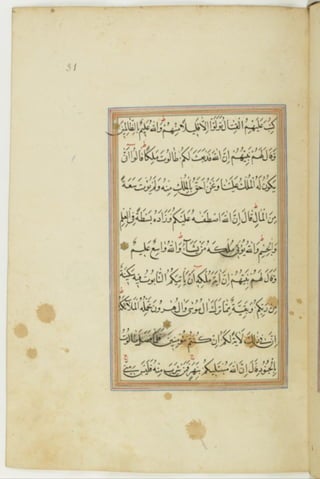 31
كتب عليهم القتال تولوا الا قليلا منهم والله عليم بالظالمين
وقال لهم نبيهم ان الله قد بعث لكم طالوت ملكا قالوا انى
يكون له الملك علينا ونحن احق بالملك منه ولم يؤت سعة
من المال قال ان الله اصطفيه عليكم وزاده بسطة في العلم
والجسم والله يؤتي ملكه من يشاء والله واسع عليم
وقال لهم نبيهم ان اية ملكه ان ياتيكم التابوت فيه سكينة
من ربكم وبقية مما ترك ال موسى وال هرون تحمله الملائكة
ان في ذلك لاية لكم ان كنتم مؤمنين فلما فصل طالوت
بالجنود قال ان الله مبتليكم بنهر فمن شرب منه فليس مني